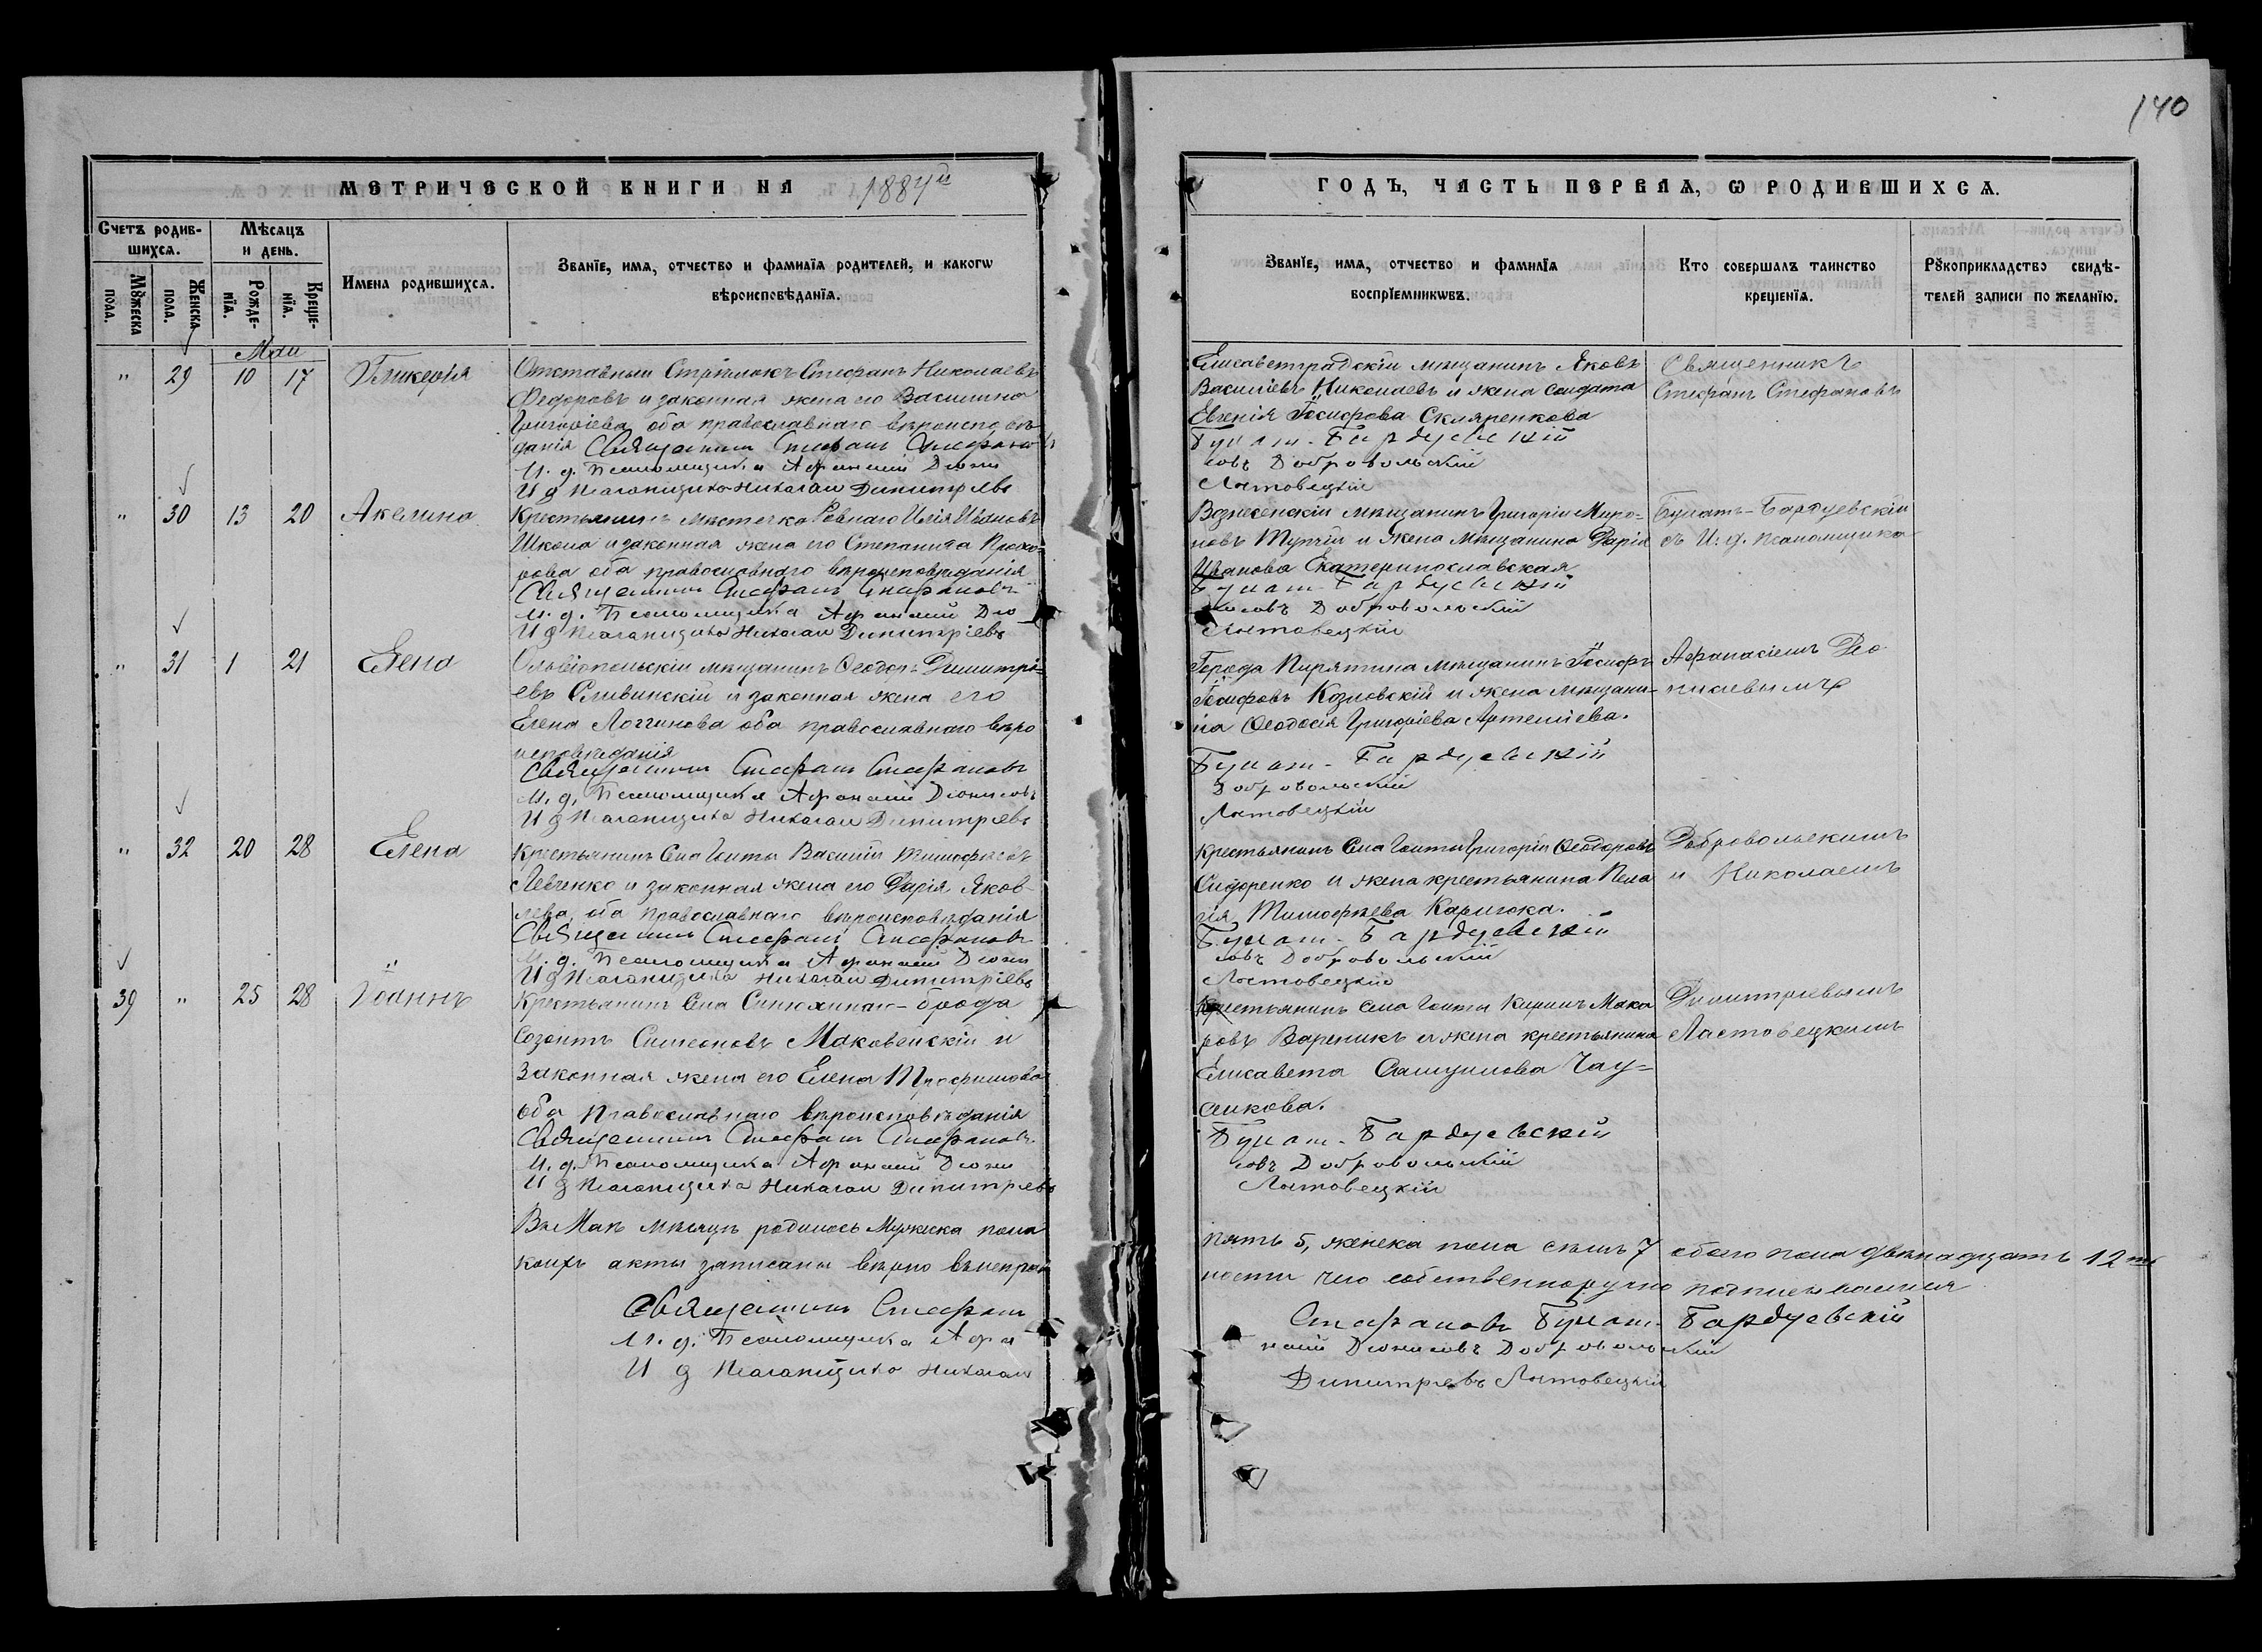 140
МЕТРИЧЕСКОЙ КНИГИ НА 1884й
ГОДЪ, ЧАСТЬ ПЕРВАѦ, Ѡ РОДИВШИХСѦ.
Счетъ родив-
шихсѧ.
Мꙋжеска
пола.
Женска
пола.
Мѣсѧцъ
и день.
Рожде-
нїѧ.
Креще-
нїѧ.
Имена родившихсѧ.
Званїе, имѧ, отчество и фамилїѧ родителей, и какогѡ
вѣроисповѣданїѧ.
Званїе, имѧ, отчество и фамилїѧ
воспрїемникѡвъ.
Кто совершалъ таинство
крещенїѧ.
Рꙋкоприкладство свидѣ-
телей записи по желанїю.
Маи
" 29 10 17 Гликерія
Отставный Стрѣлокъ Стефанъ Николаевъ
Федоровъ и законная жена его Василина
Григоріева, оба православнаго вѣроисповѣ
данія Священникъ Стефанъ Стефановъ
И. д. Псаломщика Афанасій Діони
И д Псаломщика Николай Димитріевъ
Елисаветградскій мѣщанинъ Яковъ
Василіевъ Николаевъ и жена солдата
Евгенія Іосифова Скляренкова
Булат-Бардуевскій
совъ Добровольскій
Ластовецкій
Священникъ
Стефанъ Стефановъ
" 30 13 20 Акелина
Крестьянинъ мѣстечка Ровнаго Илія Ивановъ
Школа и законная жена его Степанида Прохо-
рова оба православнаго вѣроисповѣданія
Священникъ Стефанъ Стефановъ
И. д. Псаломщика Афанасій Діо
И д Псаломщика Николай Димитріевъ
Вознесенскій мѣщанинъ Григорій Миро-
новъ Тупчій и жена мѣщанина Дарія
Иванова Екатеринославская
Булат-Бардуевскій
нисовъ Добровольскій
Ластовецкій
Булатъ-Бардуевскій
съ И. д. псаломщика
" 31 1 21 Елена
Ольвіопольскій мѣщанинъ Ѳеодоръ Димитрі-
евъ Сливинскій и законная жена его
Елена Логгинова оба православнаго вѣро
исповѣданія
Священникъ Стефанъ Стефановъ
И. д. Псаломщика Афанасій Діонисовъ
И д Псаломщика Николай Димитріевъ
Города Пирятина мѣщанинъ Іосифъ
Іосифовъ Козловскій и жена мѣщани-
на Ѳеодосія Григоріева Артеміева.
Булат-Бардуевскій
Добровольскій
Ластовецкій
Афанасіемъ Део
" 32 20 28 Елена
Крестьянинъ Села Іокты Василій Тимофѣевъ
Левченко и законная жена его Дарія Яков-
лева, оба православнаго вѣроисповѣданія
Священникъ Стефанъ Стефановъ
И. д. Псаломщика Афанасій Діони
И д Псаломщика Николай Димитріевъ
крестьянинъ Села Григорій Ѳеодоровъ
Сидоренко и жена крестьянина Пела
гія Тимофѣева
Булат-Бардуевскій
совъ Добровольскій
Ластовецкій
Добровольскимъ
и Николаемъ
39 " 25 28 Іоаннъ
Крестьянинъ Села Синюхинаго-брода
Созонтъ Симеоновъ Маковейскій и
законная жена его Елена Трофимова
оба Православнаго вѣроисповѣданія
Священникъ Стефанъ Стефановъ
И. д. Псаломщика Афанасій Діони
И д Псаломщика Николай Димитріевъ
Крестьянинъ села Кирилъ Мака
ровъ Вареникъ и жена крестьянина
Елисавета Самуилова Чау-
сенкова.
Булат-Бардуевскій
совъ Добровольскій
Ластовецкій
Димитріевымъ
Ластовецкимъ
Въ Маѣ мѣсяцѣ родилось Мужеска пола
пять 5, женска пола семь 7 обоего пола двѣнадцать 12
коихъ акты записаны вѣрно въ исправ
ности чего собственноручно подписываемся
Священникъ Стефанъ
Стефановъ Булат-Бардуевскій
И. д. Псаломщика Афа
насій Діонисовъ Добровольскій
И д Псаломщика Николай
Димитріевъ Ластовецкій